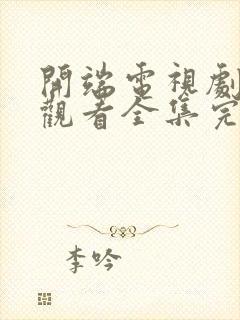 開端電視劇
觀看全集完
李吟